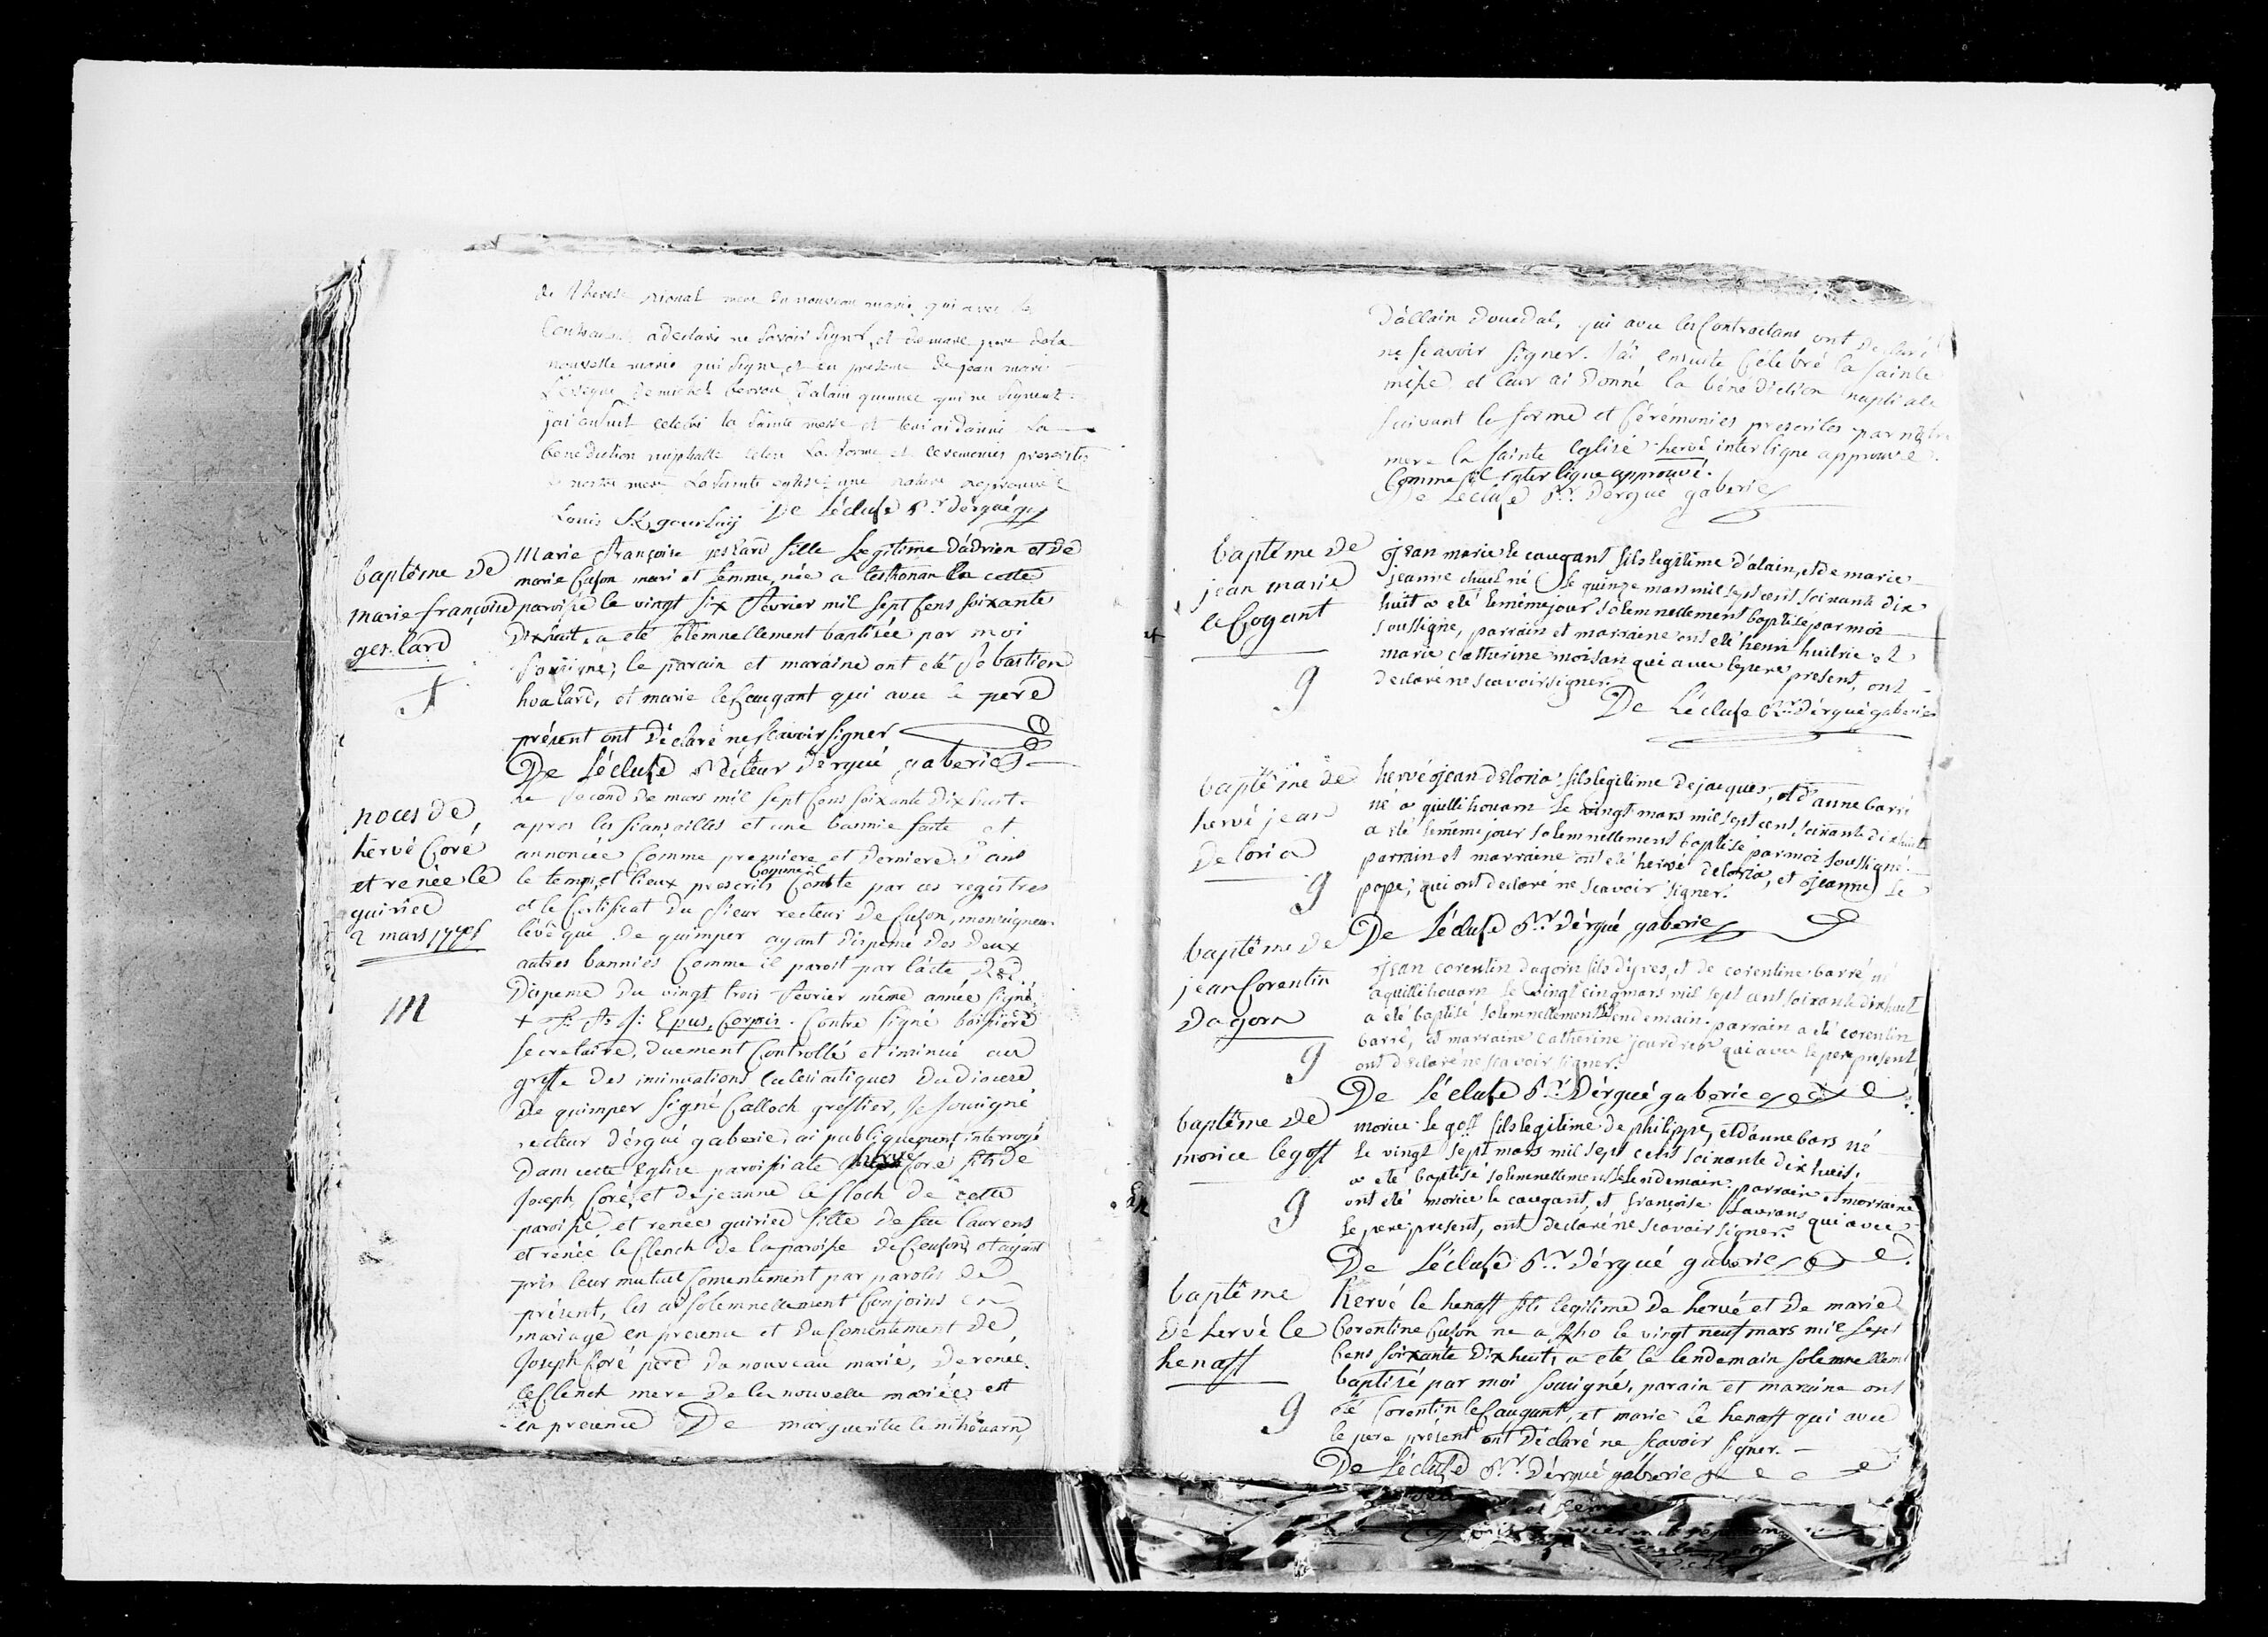 de therese rional mere du nouveau marié qui avec les
Contractants a declaré ne savoir signer, et de marc pere de la
nouvelle mariée qui signe, et en presence de jean marie
Lévêque de michel d'alain quinnec qui ne signent.
j'ai ensuit celebré la sainte messe et leur ai donné la
benediction nuptialle selon la forme et ceremonies prescrites
notre mere la sainte eglise; une rature approuvée
De Lécluse Rr. d'ergué g.
baptême de
marie françoise
geslard
f
Marie françoise jeslard fille Legitime d'adrien et de
marie Cuson mari et femme, née a lesthonan en cette
paroisse le vingt six fevrier mil sept Cens soixante
Dixhuit, a eté solemnellement baptisée par moi
soussigné; le parain et maraine ont eté sebastien
hoalard, et marie le Caugant qui avec le pere
présent ont Déclaré ne sçavoir signer
De Lécluse Recteur d'ergué gaberic
noces de
hervé Coré
et renée le
quiniec
2 mars 1778
M
Le second de mars mil sept Cens soixante Dixhuit.
apres les fiançailles et une bannie faite et
annoncée Comme premiere et Derniere Dans
le tems, et lieux prescrits Comme il Conste par ces registres
et le Certificat du sieur recteur de Cuson, monseigneur
levêque de quimper ayant dispensé des Deux
autres bannies Comme il paroit par l'acte De
Dispense du vingt trois fevrier même année signé,
+ Epus, Corpis. Contre signé boissiere
secretaire, duement Controllé et insinué au
greffe Des insinuations Ecclesiastiques Du diocese
De quimper signé Calloch greffier, Je soussigné
recteur d'érgué gaberic, ai publiquement interrogé
Dans cette Eglise paroissiale herve Coré fils de
Joseph Coré, et de jeanne le floch De cette
paroisse et renée quiniec fille de feu laurens
et renée le Clench de la paroisse de Ceuson, et ayant
pris leur mutuel Consentement par paroles De
présent, les ai solemnellement Conjoins en
mariage en présence et du Consentement De
Joseph Coré pere du nouveau marié, De renée
le Clench mere De la nouvelle mariée, et
en presence De marguerite le nihouarn,
D'allain Douedal, qui avec les Contractans ont declaré
ne scavoir signer. J'ai ensuite Célébré la sainte
messe et leur ai Donné la bénédiction nuptiale
suivant le forme et Cérémonies prescrites par notre
mere la sainte Eglise hervé interligne approuvé.
Comme il interligne approuvé.
De Lécluse Rr. d'ergué gaberic
baptême de
jean marie
le Cogant
g
Jean marie le caugant fils legitime d'alain, et de marie
jeanne né le quinze mars mil sept cent soixante dix
huit a eté le même jour solemnellement baptisé par moi
soussigné, parrain et marraine ont eté henri huitric et
marie catherine moisan qui avec le pere present, ont
declaré ne scavoir signer.
De Lécluse Rr. d'érgué gaberic
baptême de
hervé jean
Deloria
g
hervé jean deloria fils legitime de jacques, et d'anne barré
né a quillihouarn le vingt mars mil sept cent soixante dixhuit
a eté le même jour solemnellement baptisé par moi soussigné.
parrain et marraine ont eté hervé deloria, et Jeanne le
pape, qui ont declaré ne scavoir signer.
De Lécluse Rr. d'érgué gaberic
baptême de
jean Corentin
Dagorn
g
Jean corentin dagorn fils d'yves, et de corentine barré né
a quillihouarn le vingt cinq mars mil sept cent soixante dixhuit
a été baptisé solemnellement le lendemain. parrain a été corentin
barré, et marraine catherine jourdren qui avec le pere present
ont declaré ne scavoir signer.
De Lécluse Rr. D'érgué gaberic
baptême de
morice le goff
g
morice le goff fils legitime de philippe, et d'anne bars né
le vingt sept mars mil sept cent soixante dix huit,
a eté baptisé solemnellement le lendemain. parrain et marraine
ont eté morice le caugant, et françoise Laurans qui avec
le pere present, ont declaré ne scavoir signer.
De Lécluse Rr. d'érgué gaberic
baptême
dé hervé le
henaff
g
hervé le henaff fils legitime De hervé et De marie
Corentine Cuson né a le vingt neuf mars mil sept
Cens soixante Dixhuit, a eté le lendemain solemnellement
baptisé par moi soussigné, parain et maraine ont
eté Corentin le Caugant, et marie le henaff qui avec
le pere présent ont Déclaré ne sçavoir signer. -
De Lécluse Rr. D'érgué gaberic